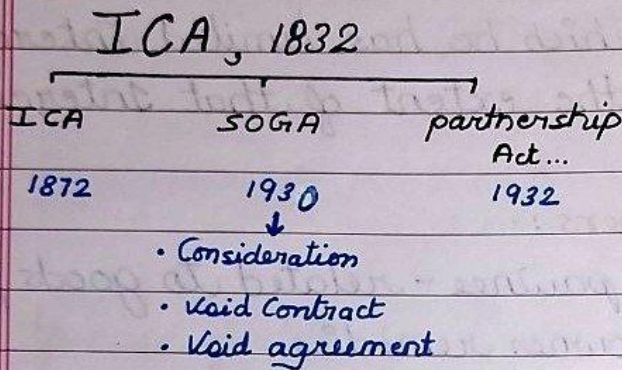 ICA, 1832
ICA SOGA partnership
Act...
1872 1930 1932
↓
• Consideration
• Void Contract
• Void agreement